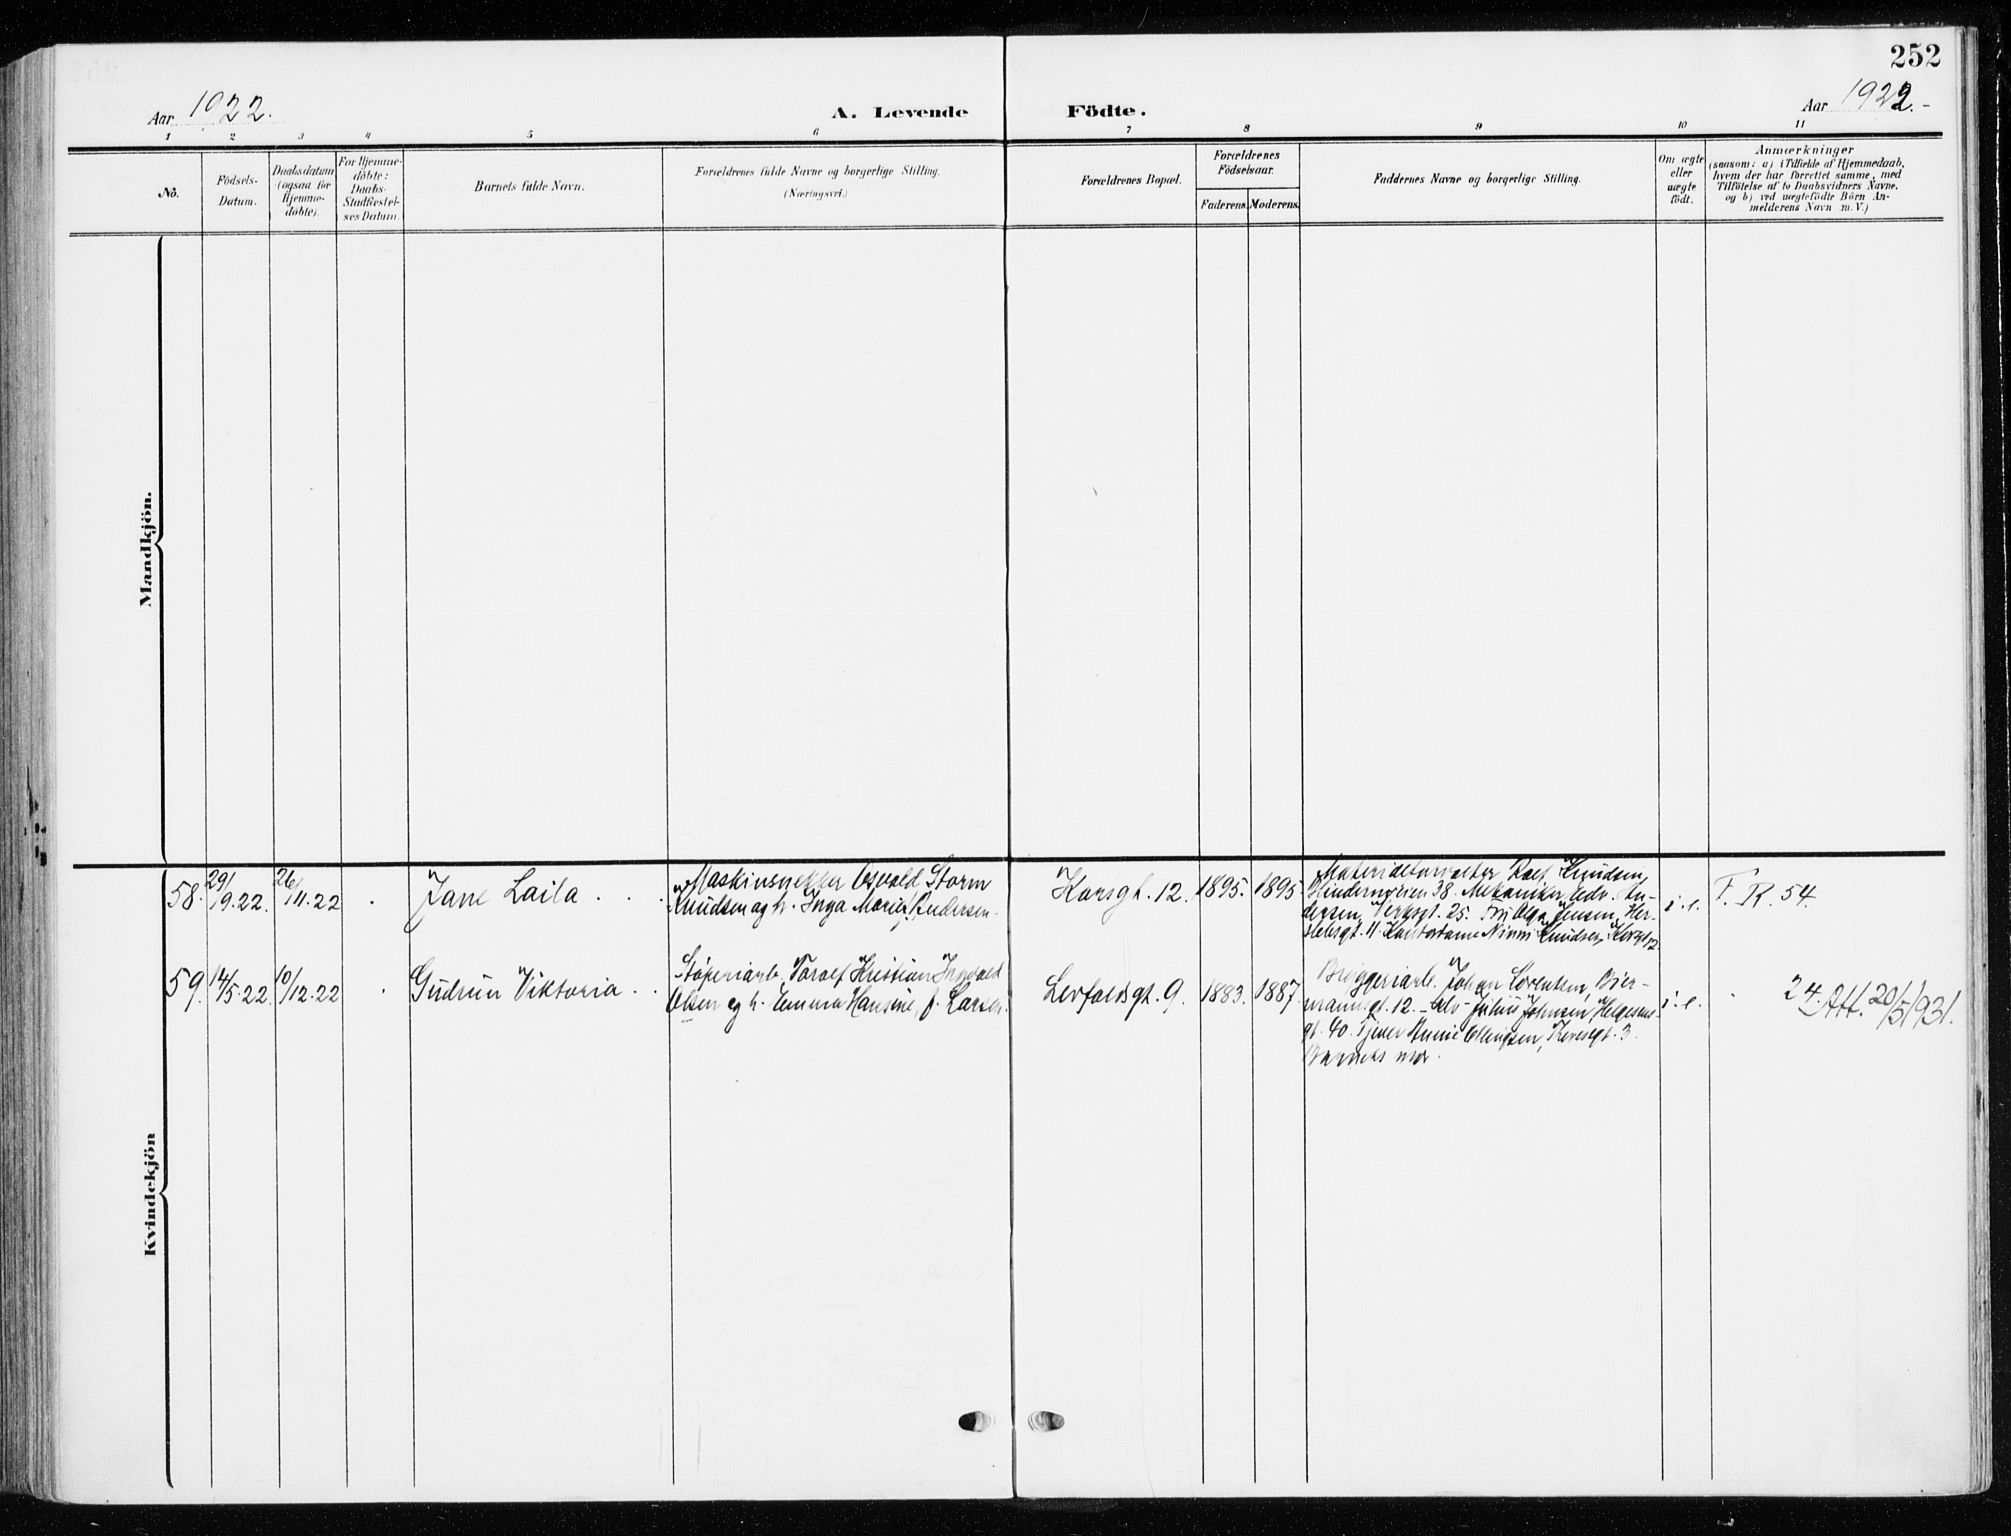 252
Aar 1922.
A. Levende Födte.
Aar 1922.-
1 2 3 4 5 6 7 8 9 10 11
No.
Födsels-
Datum.
Daabsdatum
(ogsaa for
Hjemme-
döbte).
For Hjemme-
döbte:
Daabs-
Stadfæstel-
ses Datum.
Barnets fulde Navn.
Forældrenes fulde Navne og borgerlige Stilling.
(Næringsvei.)
Forældrenes Bopæl.
Forældrenes
Födselsaar.
Faderens. Moderens.
Faddernes Navne og borgerlige Stilling.
Om ægte
eller
uægte
født.
Anmærkninger
(saasom: a) i Tilfælde af Hjemmedaab,
hvem der har forrettet samme, med
Tilföielse af to Daabsvidners Navne,
og b) ved uægtefödte Börn An-
melderens Navn m. V.)
Mandkjön.
Kvindekjön
58. 29/9.22. 26/11.22 . Jane Laila . . .
Maskinsnekker Osvald Storm
Knudsen og h. Inga Marie, f. Andersen.
Korsgt. 12. 1895. 1895
Materialforvalter Rolf Knudsen,
Blindernveien 38. Mekaniker Edv. An-
dersen, Verksgt. 25. Fru Olga Jensen, Her-
slebsgt. 11. Kontordame Knudsen, Korsgt. 12
i.e. F. R. 54.
59. 14/5.22 10/12.22 . Gudrun Viktoria . .
Støperiarb. Toralf Kristian Ingvald
Olsen og h. Emma Hansine, f. Larsen.
Levfaldsgt. 9. 1883. 1887.
Bryggeriarb. Johan Lorentzen, Bier-
mannsgt. 12. - Julius Johnsen, Helgesens-
gt. 40. Tjener Ellingsen, 3.
Barnets mor.
i.e. . 24. Att. 20/5 1931.